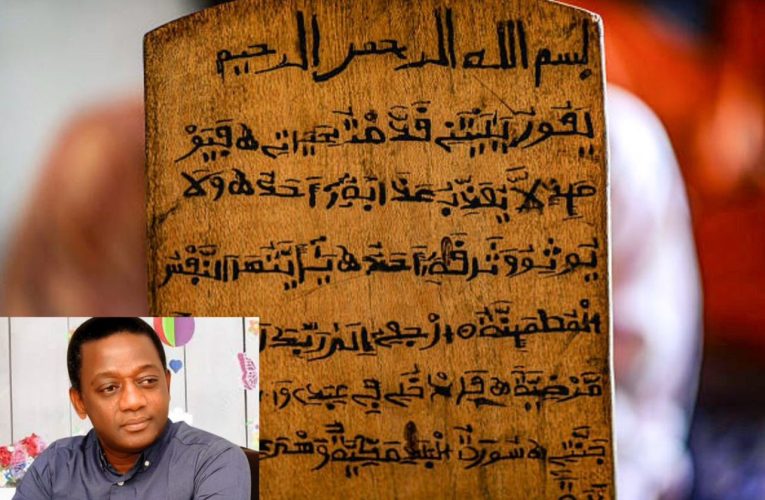 بسم الله الرحمن الرحيم
يقول يليتني قدمت لحياتي ه فيو
مئذ لا يعذب عذابه أحد ه ولا
يوثق وثاقه أحد ه يأيتها النفس
المطمئنة ه ارجعي إلى ربك
مرضية ه فادخلي في عبدي
جنتي ه سورة البلد مكية